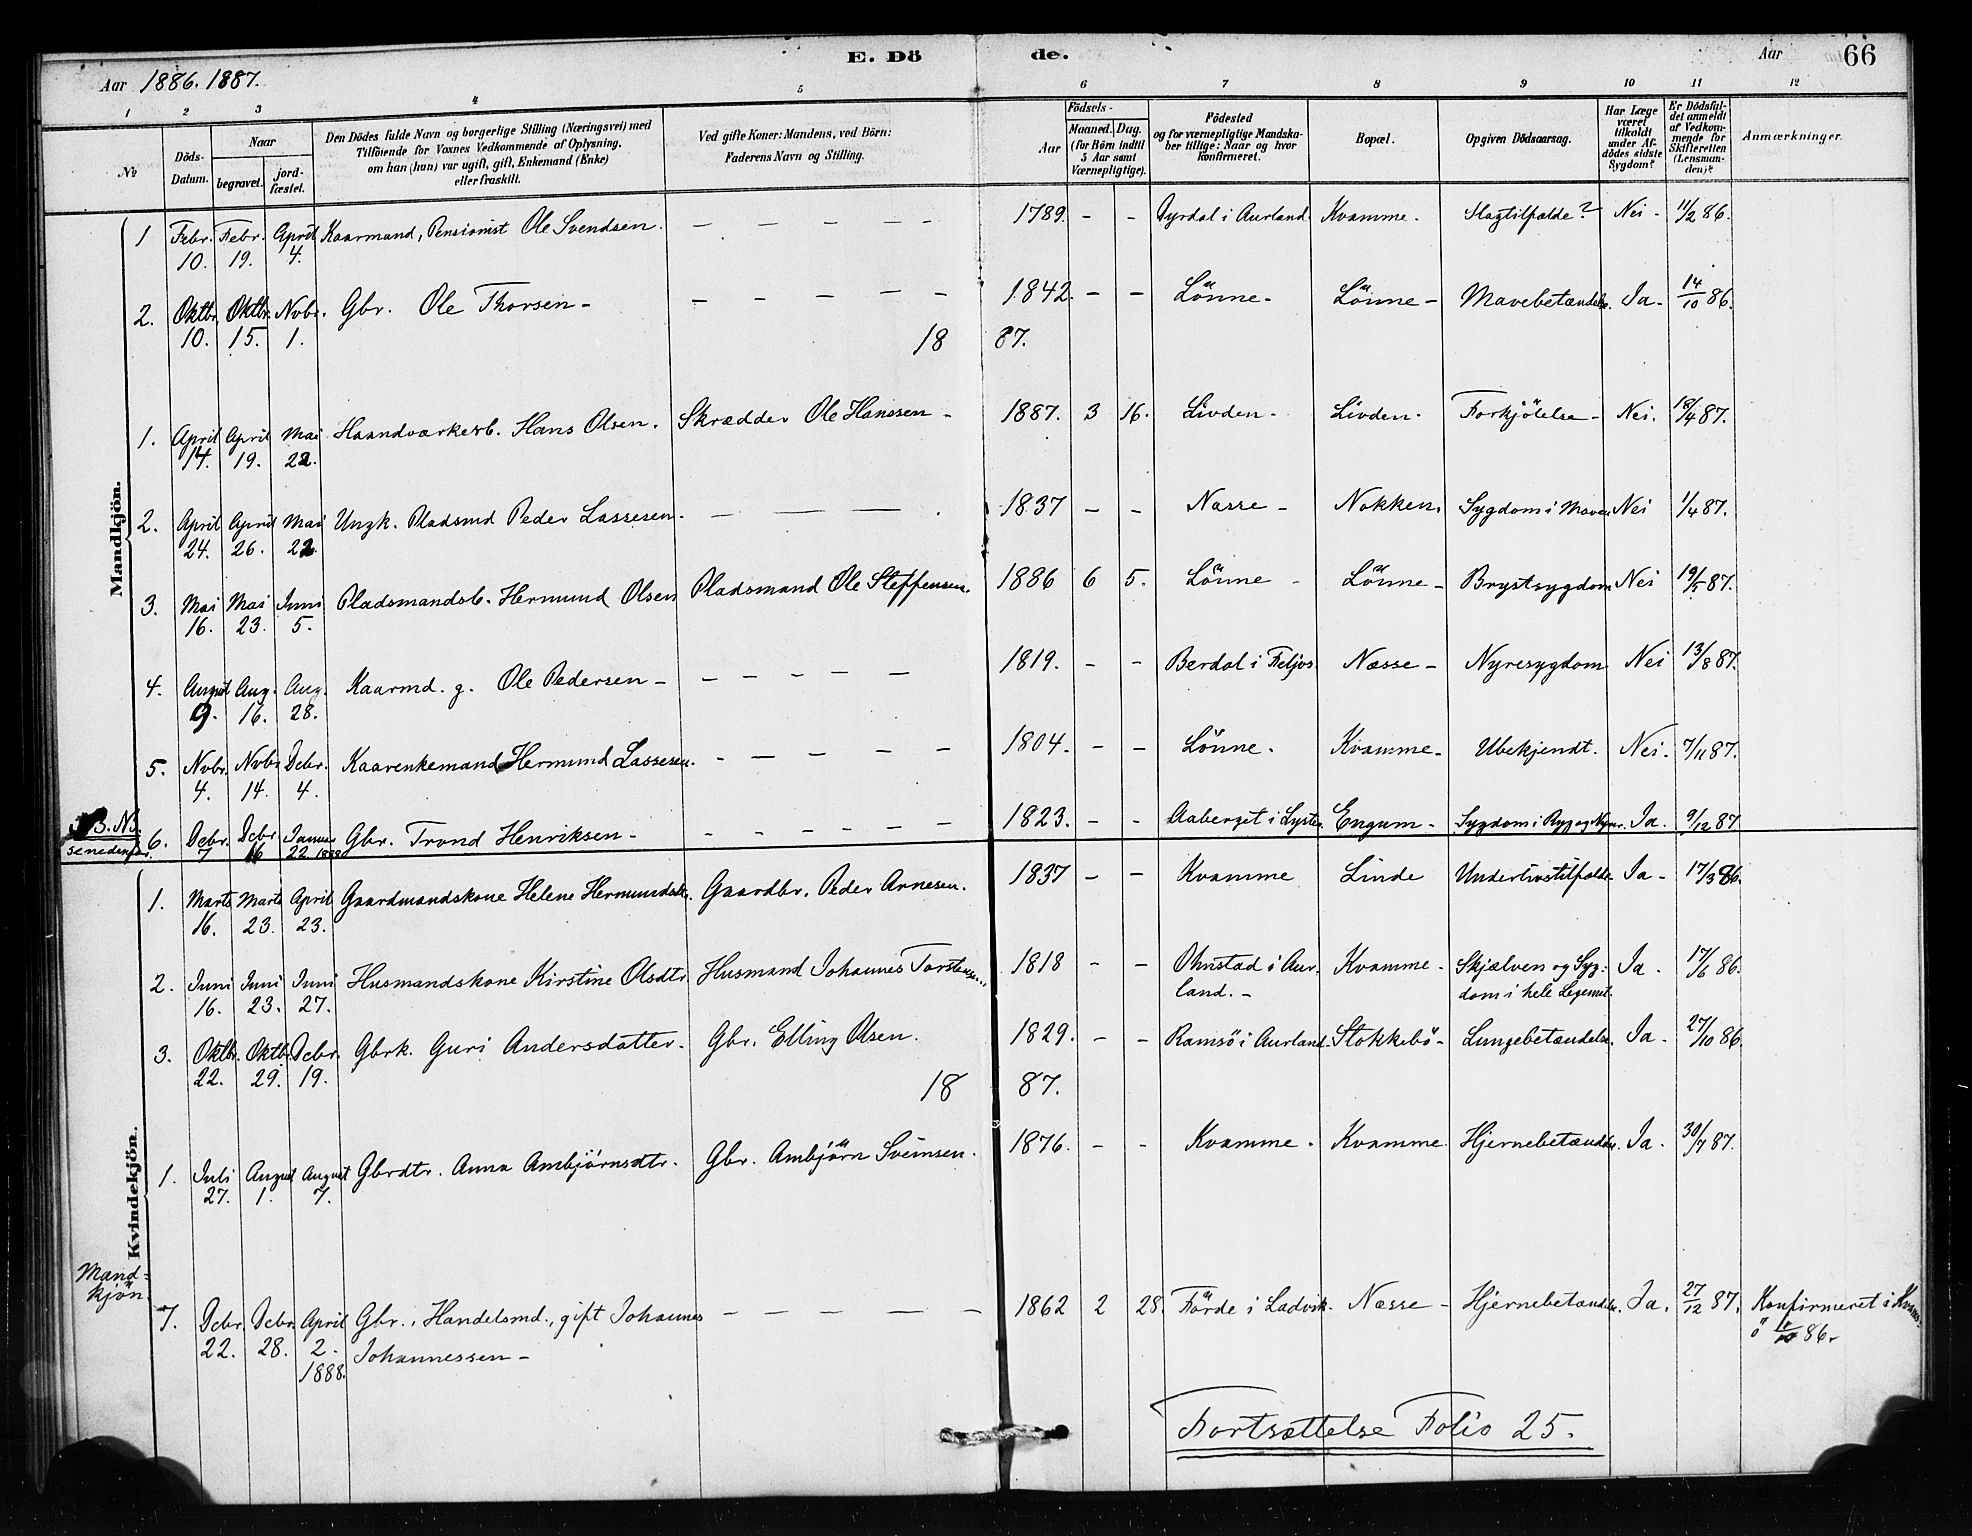 E. Dö de.
66
Aar 1886. 1887.
Aar
1 2 3 4 5 6 7 8 9 10 11 12
No
Döds-Datum.
Naar
begravet.
jord-fæstet.
Den Dödes fulde Navn og borgerlige Stilling (Næringsvei) med
Tilföiende for Voxnes Vedkommende af Oplysning,
om han (hun) var ugift, gift, Enkemand (Enke)
eller fraskilt.
Ved gifte Koner: Mandens, ved Börn:
Faderens Navn og Stilling.
Födsels-
Aar
Maaned. Dag.
(for Börn indtil
5 Aar samt
Værnepligtige).
Födested
og for værnepligtige Mandska-
ber tillige: Naar og hvor
konfirmeret.
Bopæl.
Opgiven Dödsaarsag.
Har Læge
været
tilkaldt
under Af-
dödes sidste
Sygdom?
Er Dödsfal-
det anmeldt
af Vedkom-
mende for
Skifteretten
(Lensman-
den)?
Anmærkninger.
Mandkjön.
1 Febr. 10. Febr. 19. April 4. Kaarmand, Pensionist Ole Svendsen. — — — — — 1789. - - Dyrdal i Aurland Kvamme. Slagtilfælde? Nei - 11/2 86.
2. Oktbr. 10. Oktbr. 15. Novbr. 1. Gbr. Ole Thorsen - — — — — — 1842. - - Lönne - Lönne - Mavebetændelse. Ja - 14/10 86.
18 87.
1. April 14. April 19. Mai 22. Haandværkerb. Hans Olsen. Skrædder Ole Hanssen - 1887. 3 16. Livden - Livden. Forkjölelse - Nei. 18/4 87.
2. April 24. April 26. Mai 22. Ungk. Pladsmd Peder Lassesen. — — — — 1837 - - Næsse - Nokken. Sygdom i Maven Nei 1/4 87.
3. Mai 16. Mai 23. Juni 5. Pladsmandsb. Hermund Olsen Pladsmand Ole Steffensen. 1886 6 5. Lönne - Lönne - Brystsygdom Nei 19/5 87.
4. August 9. Aug. 16. Aug. 28. Kaarmd. g. Ole Pedersen - — — — — — 1819. - - Berdal i Feljos Næsse - Nyresygdom Nei 13/8 87.
5. Nvbr. 4. Nvbr 14. Dcbr. 4. Kaarenkemand Hermund Lassesen. - — — — — 1804. - - Lönne. Kvamme. Ubekjendt. Nei. 7/11 87.
N3. se nedenfor. 6. Dcbr. 7 Dcbr 16 Januar 22. 1888 Gbr. Trond Henriksen - — — — — — — 1823. - - Aaberget i Lyster. Engum - Sygdom i Ryg og Nyrer. Ja. 9/12 87
Kvindekjön.
1. Marts 16. Marts 23. April 23. Gaardmandskone Helene Hermundsdtr. Gaardbr. Peder Arnesen. 1837 - - Kvamme Linde Underlivstilfælde. Ja - 17/3 86.
2. Juni 16. Juni 23. Juni 27. Husmandskone Kirstine Olsdtr. Husmand Johannes Torstensen. 1818 - - Ohnstad i Aur-
land. - Kvamme - Skjælven og Syg-
dom i hele Legemet. Ja - 17/6 86.
3. Oktbr. 22. Oktbr. 29. Dcbr. 19. Gbrk. Guri Andersdatter. Gbr. Elling Olsen. 1829. - - Ramsö i Aurland - Stokkebö - Lungebetændelse. Ja - 27/10 86.
18 87.
1. Juli 27. August 1. August 7. Gbrdtr. Anna Ambjörnsdtr. Gbr. Ambjörn Sveinsen. 1876. - - Kvamme. Kvamme. Hjernebetændelse. Ja. 30/7 87.
Mand-
kjön.
7. Dcbr. 22. Dcbr. 28. April 2. 1888. Gbr., Handelsmd., gift Johannes
Johannessen - — — — — — 1862 2 28. Förde i Ladvik. Næsse - Hjernebetændelse. Ja. 27/12 87. Konfirmeret i Kvams-
ö 86.
Fortsættelse Folio 25.